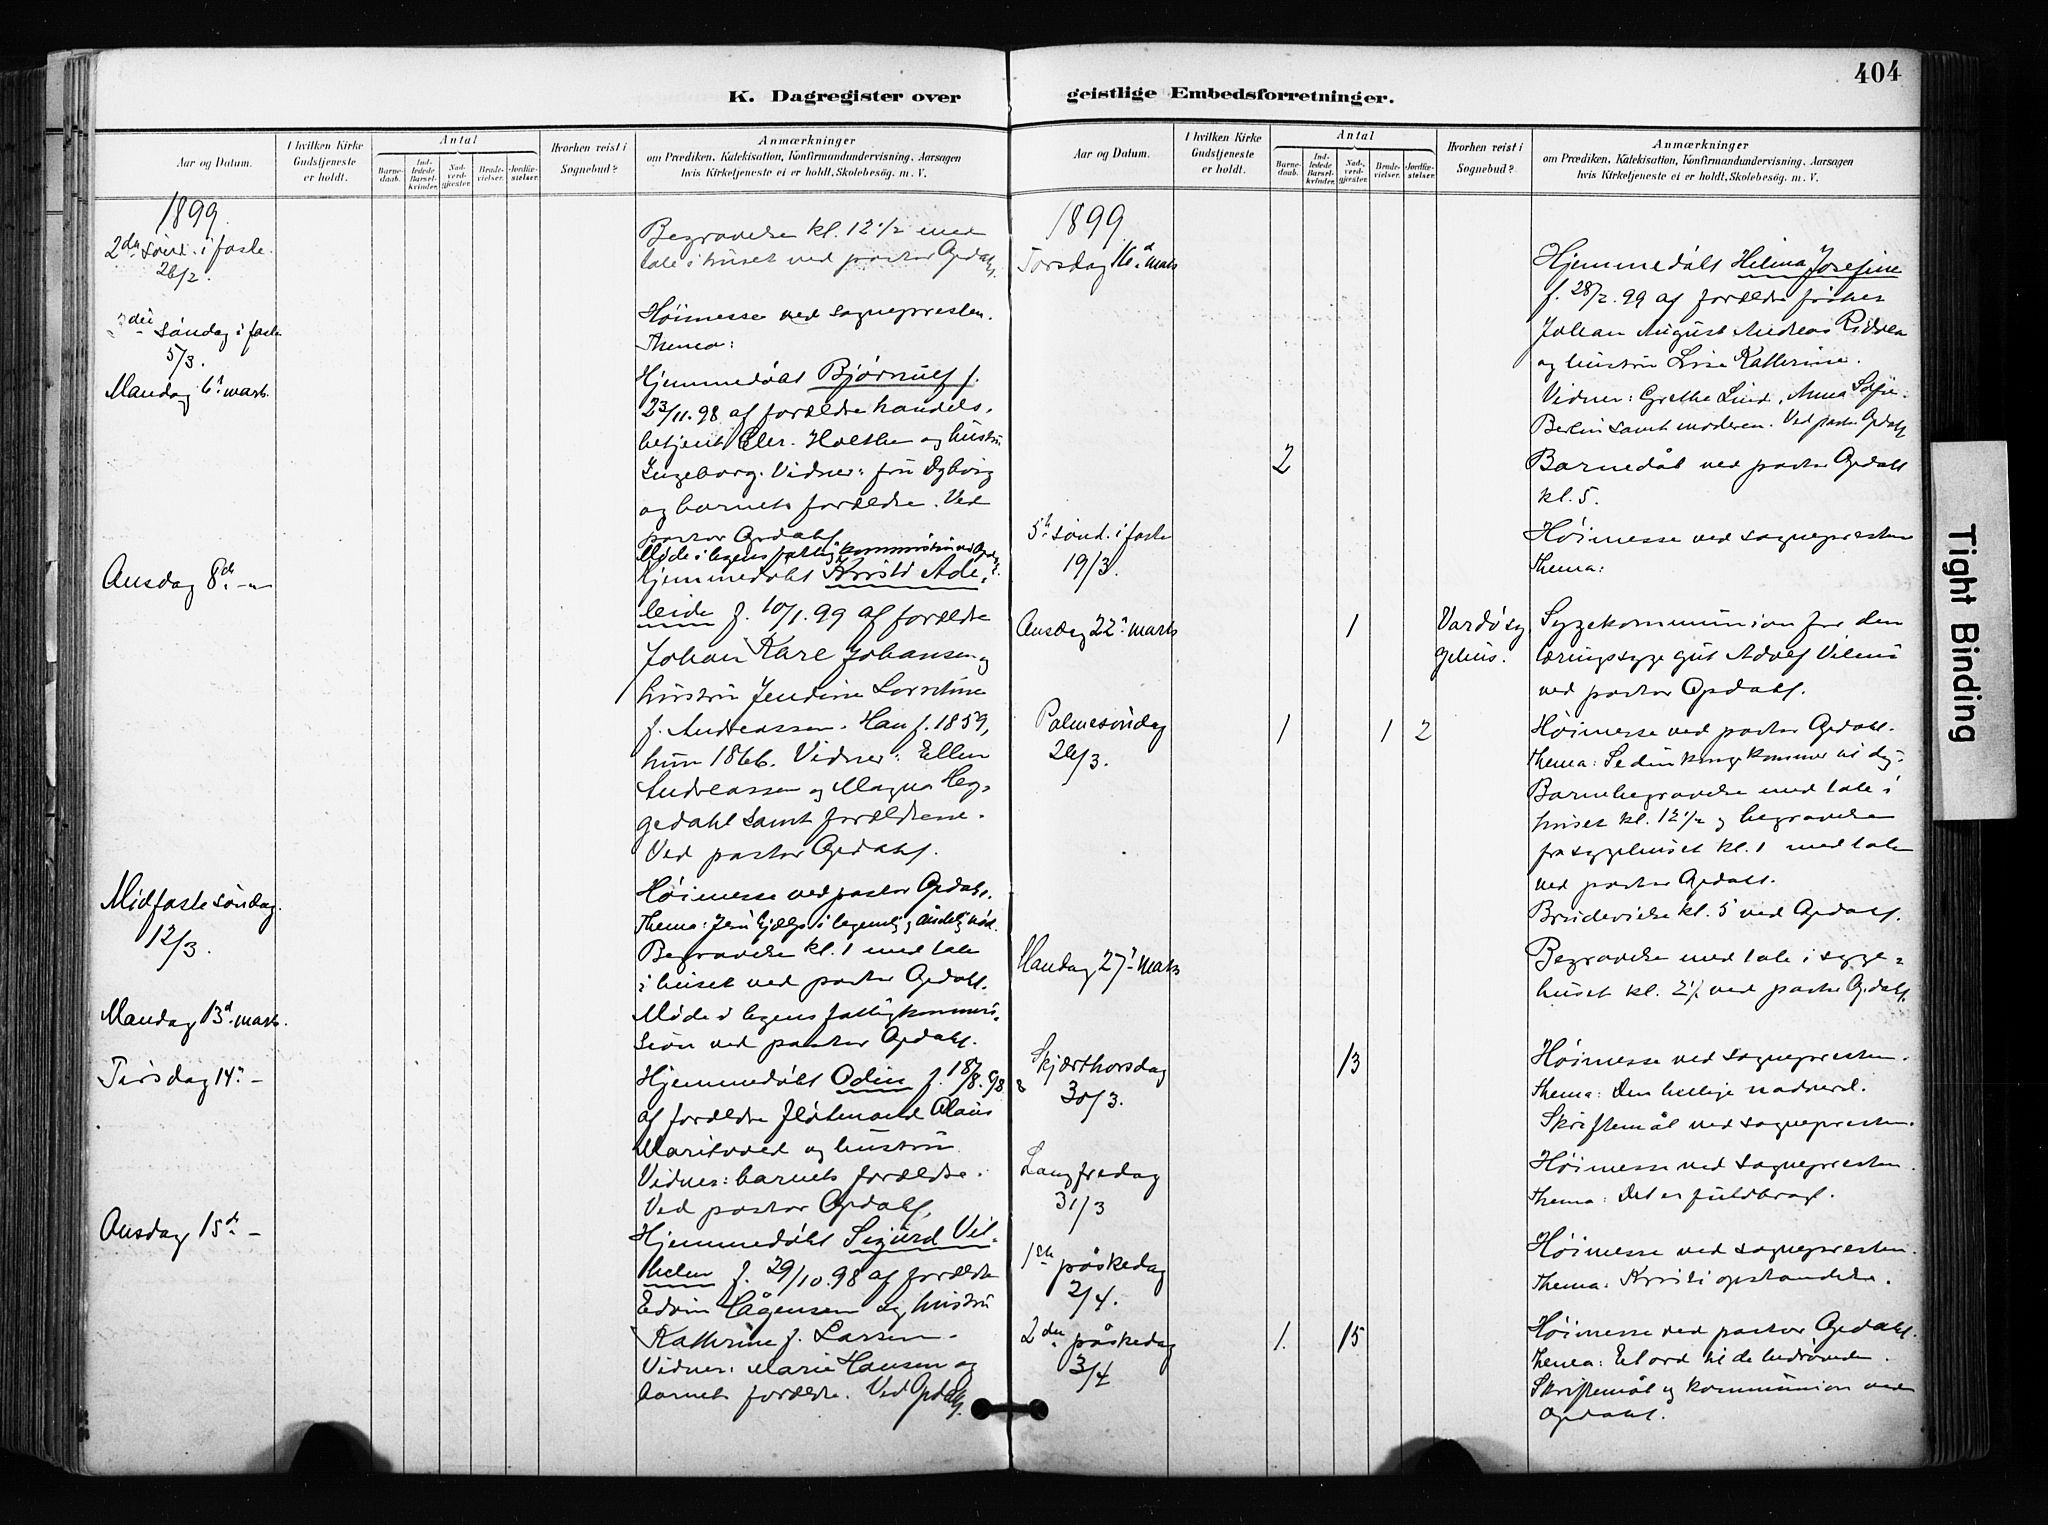 404
K. Dagregister over
geistlige Embedsforretninger.
Aar og Datum.
I hvilken Kirke
Gudstjeneste
er holdt.
Antal
Barne-
daab.
Ind-
ledede
Barsel-
kvinder.
Nad-
verd-
gjester.
Brude-
vielser.
Jordfæ-
stelser.
Hvorhen reist i
Sognebud?
Anmærkninger
om Prædiken, Katekisation, Konfirmandundervisning, Aarsagen
hvis Kirketjeneste ei er holdt, Skolebesøg. m. V.
1899
2den sönd. i faste
26/2.
Begravelse kl. 12 1/2 med
tale i huset ved pastor Opdahl.
3die söndag i faste
5/3.
Høimesse ved sognepresten.
Thema:
Mandag 6t marts.
Hjemmedøbt Bjørnulf f.
23/11. 98 af forældre handels-
betjent Holthe og hustru
Ingeborg. Vidner: fru Dyborg
og barnets forældre. Ved
pastor Opdahl.
Møde i byens fattigkommission ved Opdahl.
Onsdag 8d -
Hjemmedøbt Kristi Ade-
leide f. 10/1. 99 af forældre
Johan Karl Johansen og
hustru Jendine
f. Andreassen. Han f. 1859,
hun 1866. Vidner: Ellen
Andreassen og Magna Heg-
gedahl samt forældrene.
Ved pastor Opdahl.
Midfastesöndag.
12/3.
Høimesse ved pastor Opdahl.
Thema: Jesu hjælp i legemlig og åndelig nød.
Begravelse kl. 1 med tale
i huset ved pastor Opdahl.
Mandag 13d marts.
Møde i byens fattigkommis-
sion ved pastor Opdahl.
Tirsdag 14d -
Hjemmedøbt Odin f. 18/8. 98
af forældre
og hustru
Vidner: barnets forældre.
Ved pastor Opdahl.
Onsdag 15d -
Hjemmedøbt Sigurd Vil-
helm f. 29/10. 98 af forældre
Edvin Hågensen og hustru
Kathrine f. Larsen.
Vidner: Marie Hansen og
barnets forældre. Ved Opdahl.
Aar og Datum.
I hvilken Kirke
Gudstjeneste
er holdt.
Antal
Barne-
daab.
Ind-
ledede
Barsel-
kvinder.
Nad-
verd-
gjester.
Brude-
vielser.
Jordfæ-
stelser.
Hvorhen reist i
Sognebud?
Anmærkninger
om Prædiken, Katekisation, Konfirmandundervisning, Aarsagen
hvis Kirketjeneste ei er holdt, Skolebesøg. m. V.
1899
Torsdag 16d marts
Hjemmedøbt Helina Josefine
f. 28/2. 99 af forældre fisker
Johan August Andreas
og hustru Lise Katherine.
Vidner: Grethe Lind, Anna Sofie
Berlin samt moderen. Ved pastor Opdahl
2
Barnedåb ved pastor Opdahl
kl. 5.
5t sönd. i faste
19/3.
Høimesse ved sognepresten
Thema:
Onsdag 22d marts
1
Vardö sy-
gehus.
Sygekommunion for den
tæringssyge gut Adolf
ved pastor Opdahl.
Palmesöndag
26/3.
1
1
2
Høimesse ved pastor Opdahl.
Thema: Se din konge kommer til dig.
Barnebegravelse med tale i
huset kl. 12 1/2 og begravelse
fra sygehuset kl. 1 med tale
ved pastor Opdahl.
Brudevielse kl. 5 ved Opdahl.
Mandag 27d marts
Begravelse med tale i syge-
huset kl. ved pastor Opdahl.
Skjærthorsdag
30/3.
13
Høimesse ved sognepresten.
Thema: Den hellige nadverd.
Skriftemål ved sognepresten.
Langfredag
31/3
Høimesse ved sognepresten.
Thema: Det er fuldbragt.
1ste påskedag
2/4.
Høimesse ved sognepresten.
Thema: Kristi opstandelse.
2den påskedag
3/4
1.
15
Høimesse ved pastor Opdahl.
Thema: Et ord til de bedrøvede.
Skriftemål og kommunion ved
Opdahl.
Tight Binding